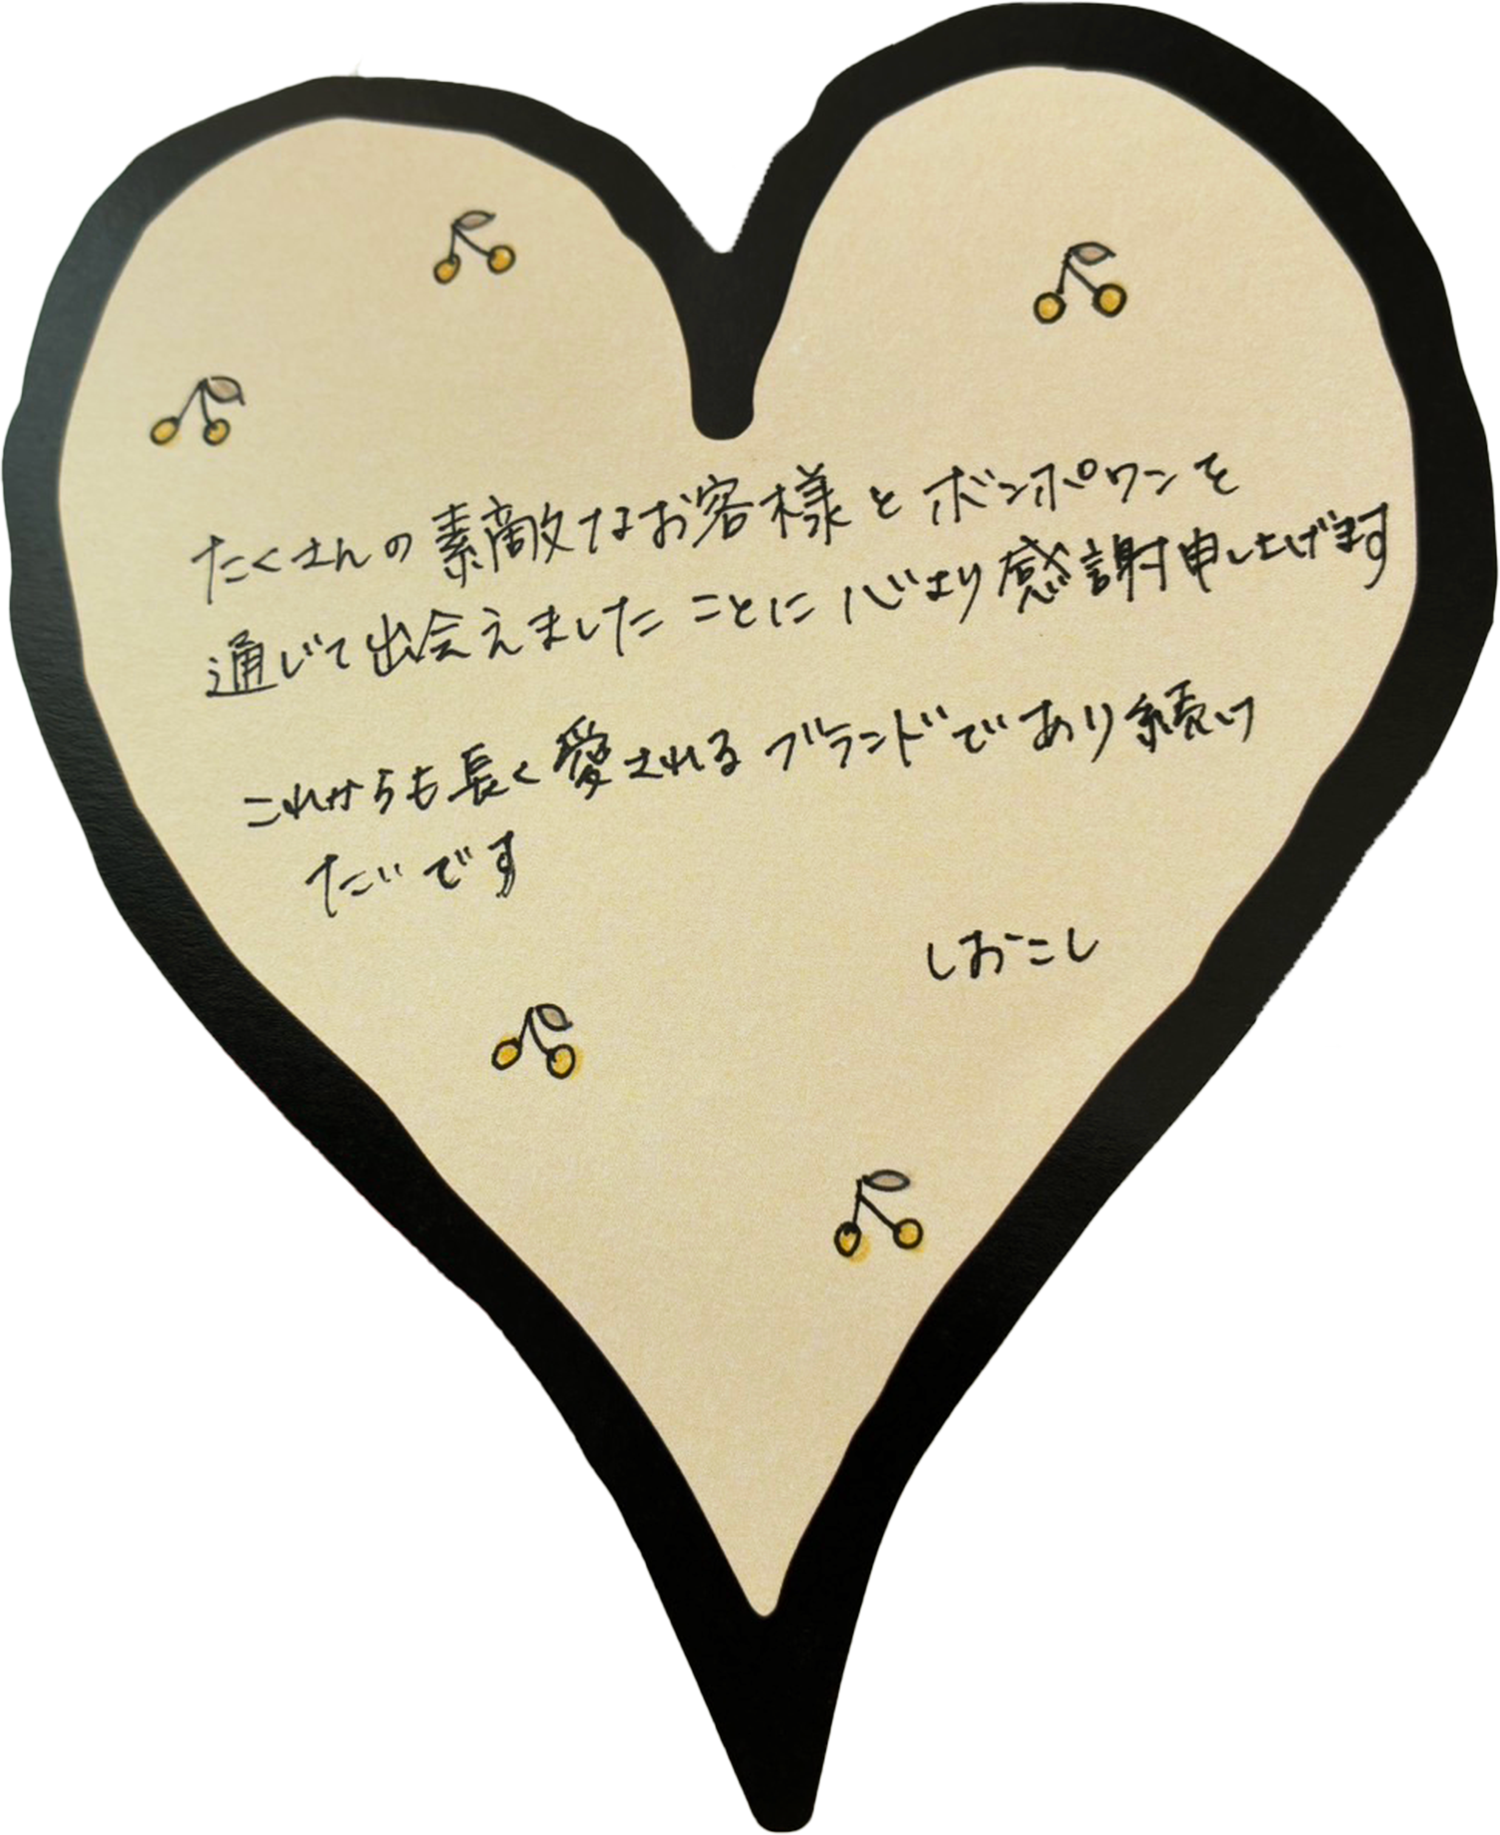 たくさんの素敵なお客様とボンポワンを
通じて出会えましたことに心より感謝申し上げます
これからも長く愛されるブランドであり続け
たいです
しおこし